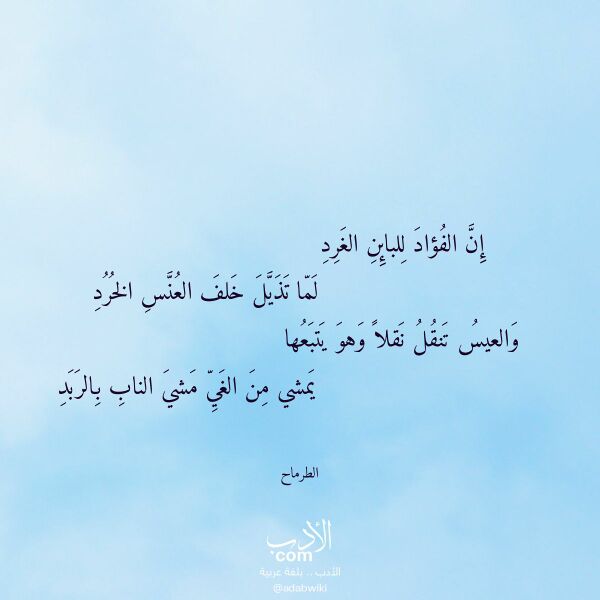 إِنَّ الفُؤادَ لِلبائِنِ الغَرِدِ
لَمّا تَذَيَّلَ خَلفَ العُنَّسِ الخُرُدِ
وَالعيسُ تَنقُلُ نَقلاً وَهوَ يَتبَعُها
يَمشي مِنَ الغَيِّ مَشيَ النابِ بِالرَبَدِ
الطرماح
الأدب
com
الأدب .. بلغة عربية
@adabwiki